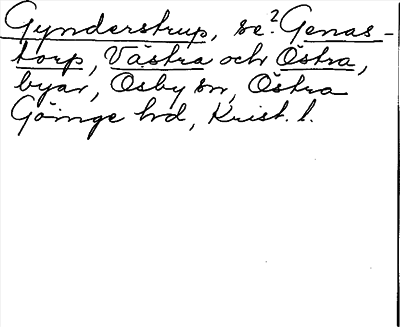 Gynderstrup, se ?Genas-
torp, Västra och Östra,
byar, Osby sn, Östra
Göinge hd, Krist. l.